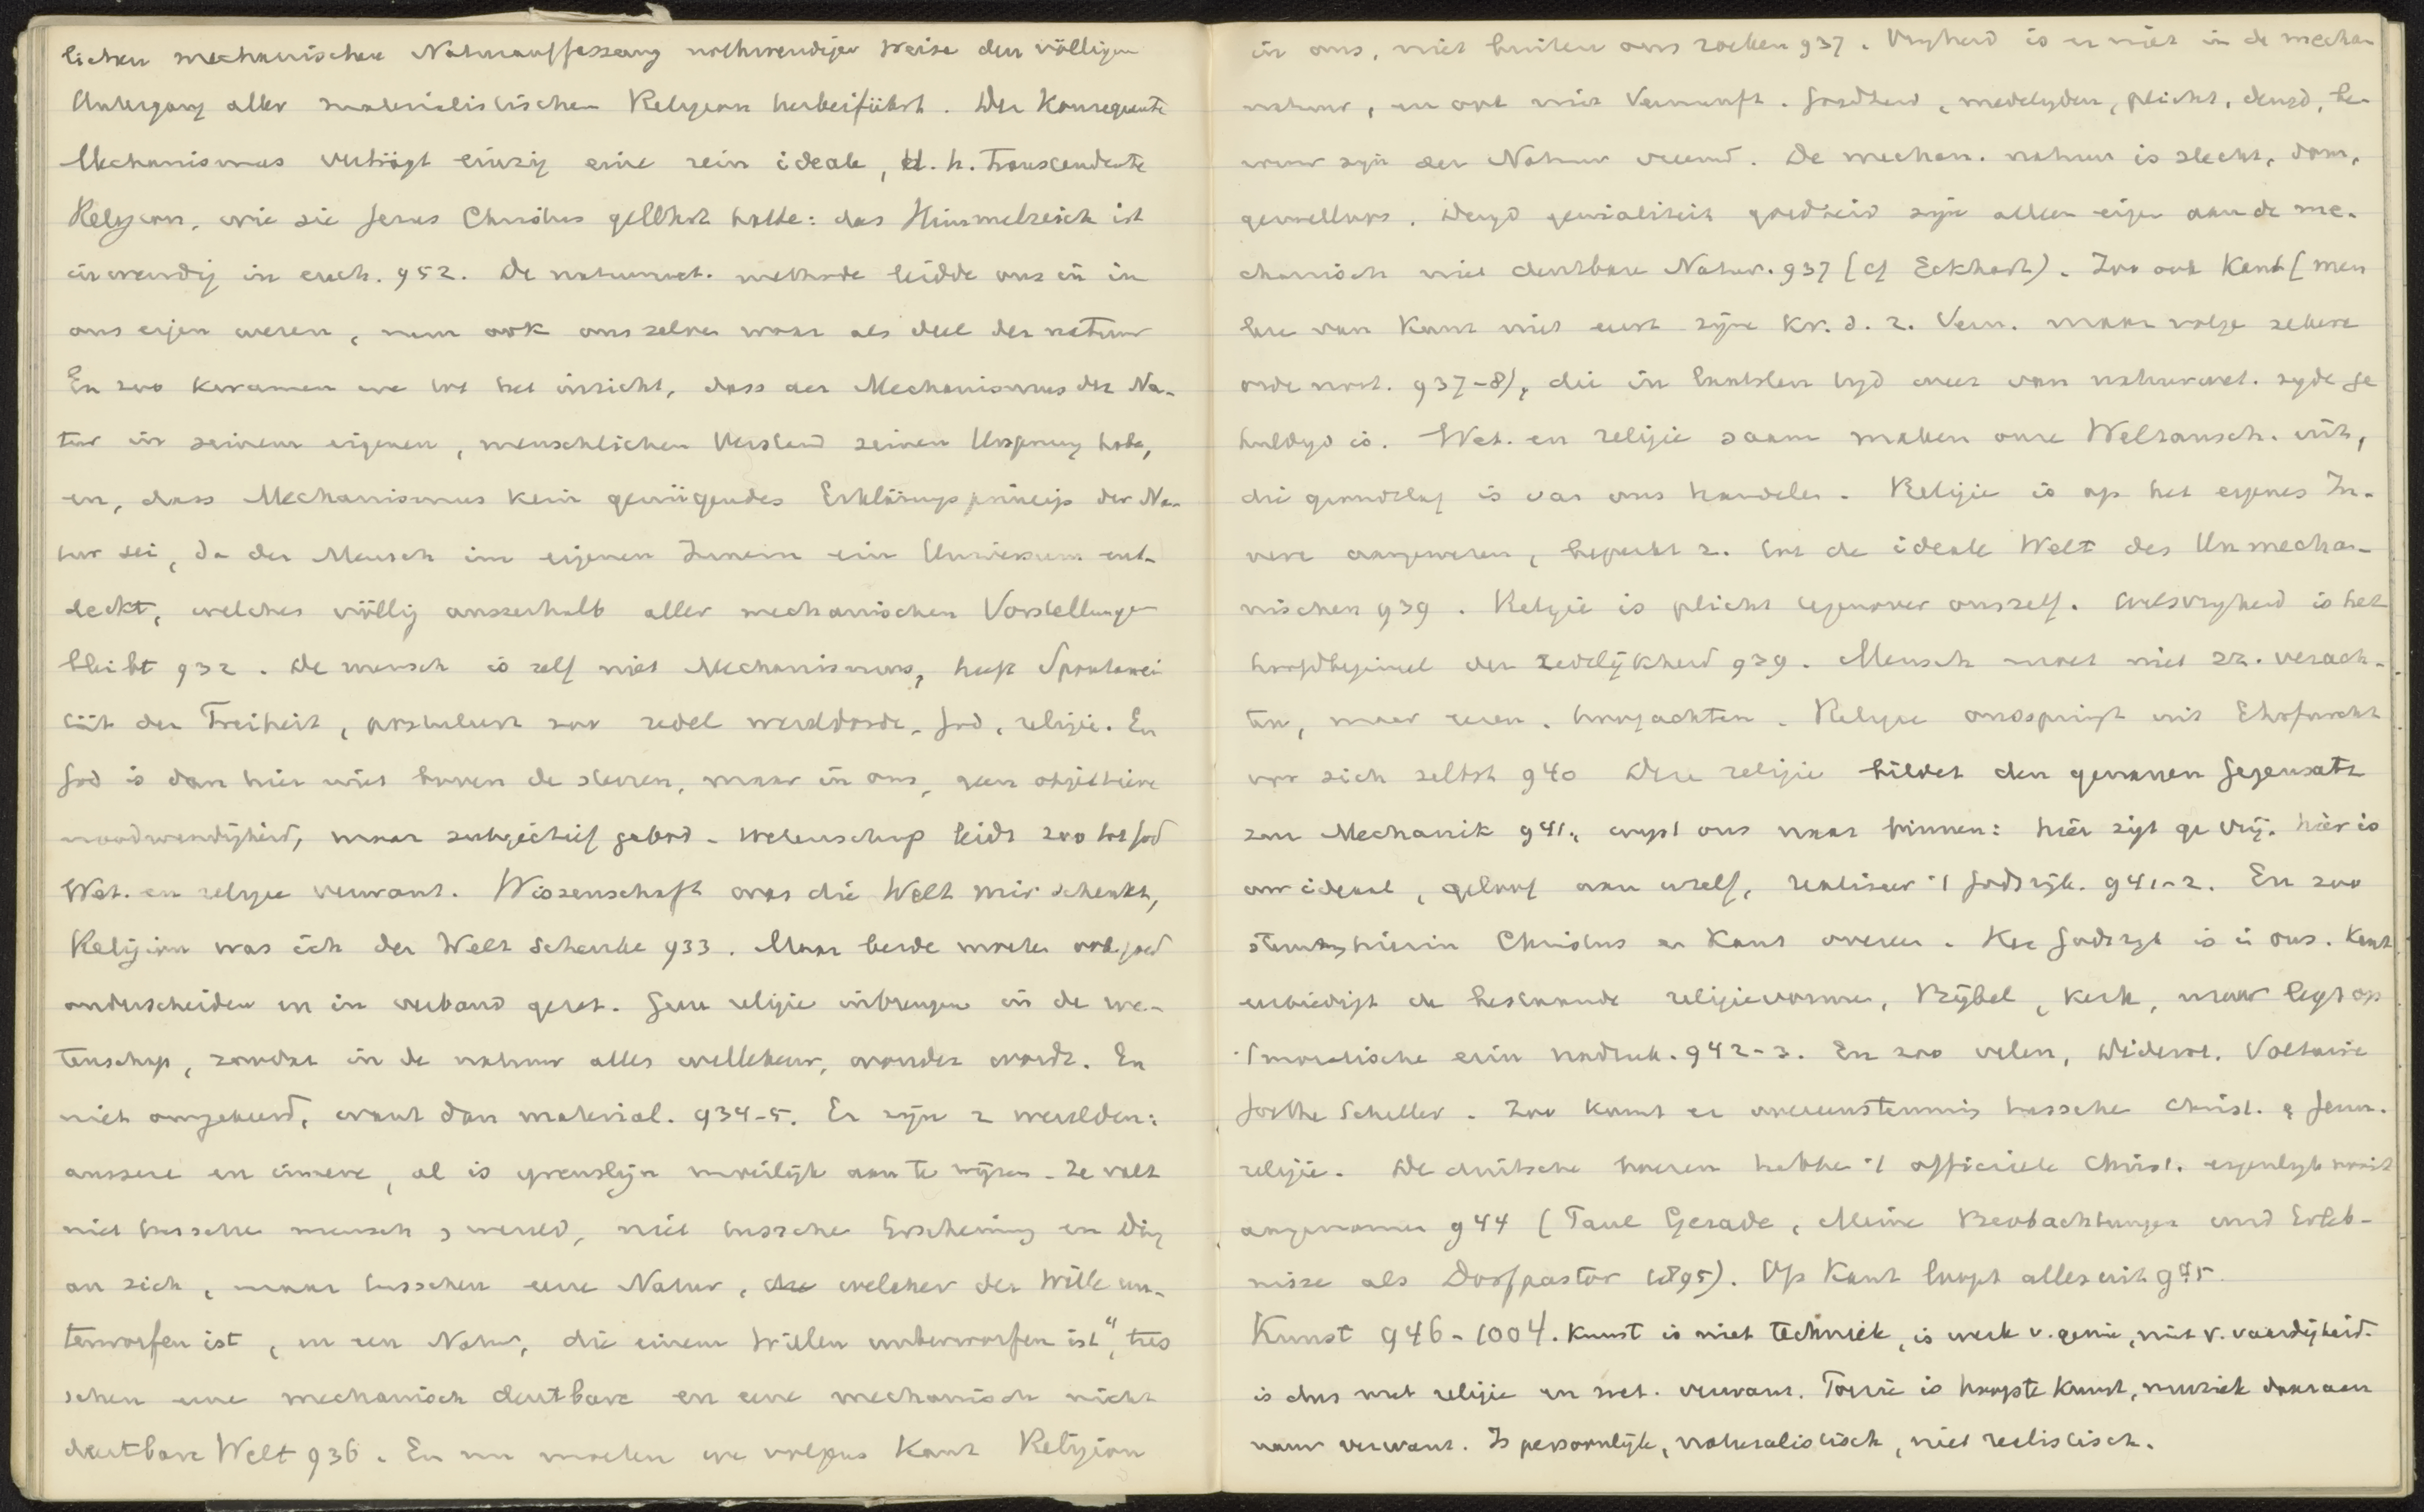 lichen mechanischen Naturauffassung nothwendiger Weise den völligen
Untergang aller materialistischen Religion herbeiführt. Der Konsequente
Mechanismus verträgt einzig eine rein ideale, d. h. transcendente
Religion, wie sie Jesus Christus gelehrt hatte: das Himmelreich ist
inwendig in euch. 932. De natuurwet. methode leidde ons in in
ons eigen wezen, nam ook ons zelve waar als deel der natuur
En zoo kwamen we tot het inzicht, dass der Mechanismus der Na-
tur in seinem eigenen, menschlichen Verstand seinen Ursprung habe,
en, dass Mechanismus kein genügendes Erklärungsprincip der Na-
tur sei, da der Mensch im eigenen Innern ein Universum ent-
deckt, welches völlig ausserhalb aller mechanischen Vorstellungen
bleibt 932. De mensch is zelf niet Mechanismus, heeft Spontanei
tät der Freiheit, postuleert zoo zedel wereldorde, God, religie. En
God is dan hier niet boven de sterren, maar in ons, geen objectieve
noodwendigheid, maar subjectief gebod. Wetenschap leidt zoo tot God
Wet. en religie verwant. Wissenschaft was die Welt mir schenkt,
Religion was ich der Welt schenke 933. Maar beide moeten ook goed
onderscheiden en in verband gezet. Geen religie inbrengen in de we-
tenschap, zoodat in de natuur alles willekeur, wonder wordt. En
niet omgekeerd, want dan material. 934-5. Er zijn 2 werelden:
aussere en innere, al is grenslijn moeilijk aan te wijzen. Ze valt
niet tusschen mensch & wereld, niet tusschen Erscheinung en Ding
an sich, maar tusschen eene Natur, welcher der Wille un-
terworfen ist, en een Natur, die einem Willen unterworfen ist", tus
schen eene mechanisch deutbare en eene mechanisch nicht
deutbare Welt 936. En nu moeten we volgens Kant Religion
in ons, niet buiten ons zoeken 937. Vrijheid is er niet in de mechan
natuur, en ook niet Vernunft. Goedheid, medelijden, plicht, deugd, be-
rouw zijn der Natuur vreemd. De mechan. natuur is slecht, dom,
gevoelloos. Deugd genialiteit goedheid zijn alleen eigen aan de me-
chanisch niet deutbare Natur. 937 (cf Eckhart). Zoo ook Kant (men
leze van Kant niet eerst zijn Kr. d. r. Vern. maar volge zekere
orde noot. 937-8), die in laatsten tijd weer van natuurwet. zijde ge
huldigd is. Wet. en religie saam maken onze Weltansch. uit,
die grondslag is van ons handelen. Religie is op het eigenes In-
nere aangewezen, beperkt z. tot de ideale Welt des Unmecha-
nischen 939. Religie is plicht tegenover onszelf. Wilsvrijheid is het
hoofdbeginsel der zedelijkheid 939. Mensch moet niet zz. verach-
ten, maar eeren, hoogachten. Religie ontspringt uit Ehrfurcht
vor sich selbst 940 Deze religie bildet den genauen Gegensatz
zur Mechanik 941, wijst ons naar binnen: hier zijt ge vrij. hier is
uw ideaal, geloof aan uzelf, realiseer 't Godsrijk. 941-2. En zoo
stemmen hierin Christus en Kant overeen. Het Godsrijk is in ons. Kant
eerbiedigt de bestaande religievormen, Bijbel, kerk, maar legt op
't moralische erin nadruk. 942-3. En zoo velen, Diderot, Voltaire
Goethe Schiller. Zoo komt er overeenstemming tusschen Christ. & Germ.
religie. De duitsche boeren hebben 't officieele Christ. eigenlijk nooit
aangenomen 944 (Paul Gerade, Meine Beobachtungen und Erleb-
nisse als Dorfpastor 1895). Op Kant loopt alles uit 945
Kunst 946-1004. Kunst is niet techniek, is werk v. genie, niet v. vaardigheid.
is dus met religie en wet. verwant. Poezie is hoogste kunst, muziek daaraan
nauw verwant. Is persoonlijk, naturalistisch, niet realistisch.